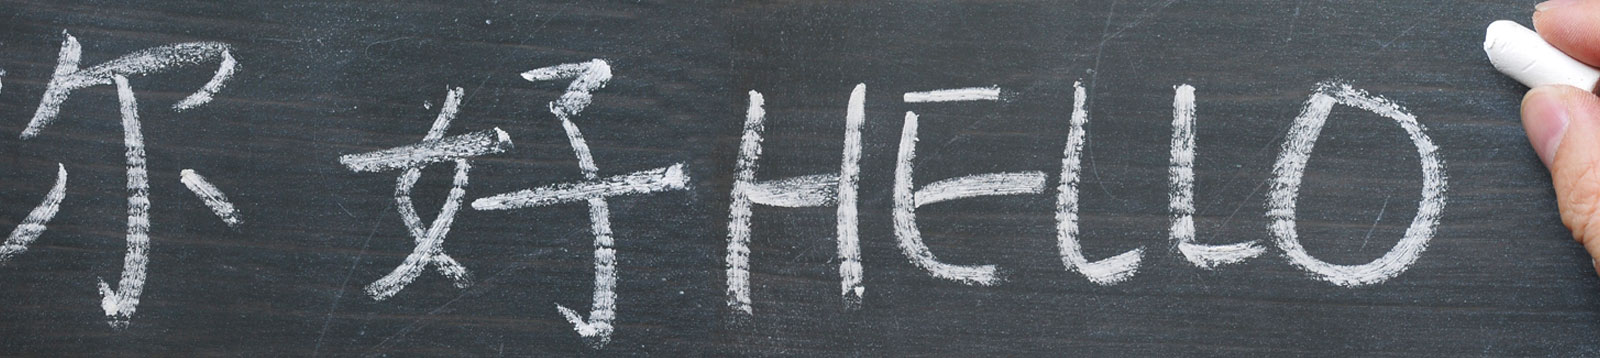 你好HELLO